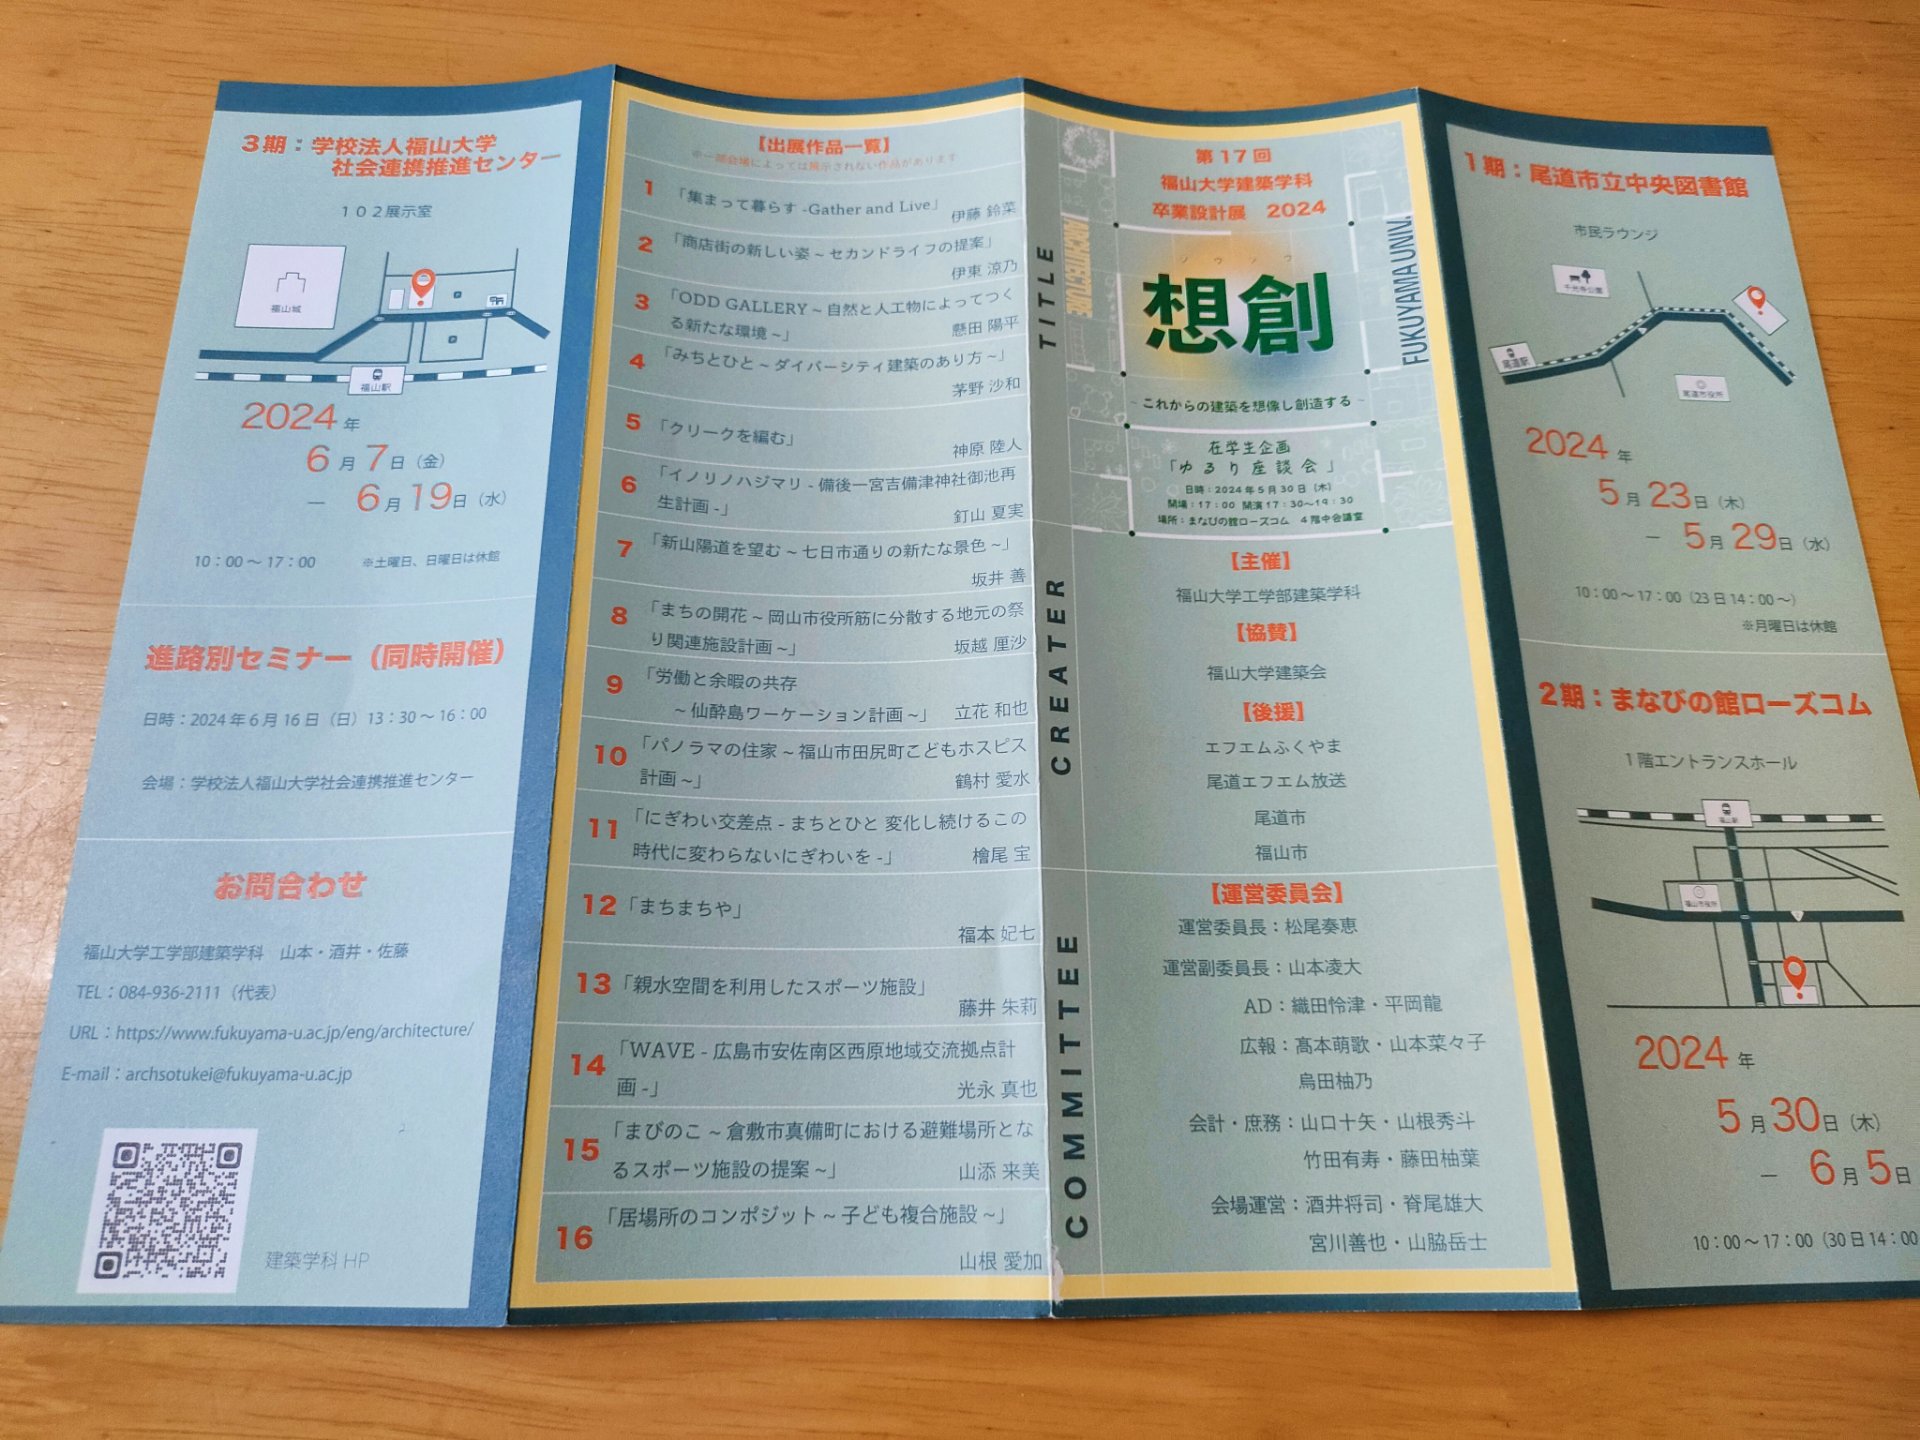 3期：学校法人福山大学
社会連携推進センター
１０２展示室
福山城
福山駅
2024年
6月7日（金）
― 6月19日（水）
10：00～17：00 ※土曜日、日曜日は休館
進路別セミナー（同時開催）
日時：2024年6月16日（日）13：30～16：00
会場：学校法人福山大学社会連携推進センター
お問合わせ
福山大学工学部建築学科　山本・酒井・佐藤
TEL：084-936-2111（代表）
URL：https://www.fukuyama-u.ac.jp/eng/architecture/
E-mail：archsotukei@fukuyama-u.ac.jp
建築学科 HP
【出展作品一覧】
※一部会場によっては展示されない作品があります
1 「集まって暮らす -Gather and Live」
伊藤 鈴菜
2 「商店街の新しい姿 ~ セカンドライフの提案」
伊東 涼乃
3 「ODD GALLERY ~ 自然と人工物によってつく
る新たな環境 ~」 懸田 陽平
4 「みちとひと ~ ダイバーシティ建築のあり方 ~」
茅野 沙和
5 「クリークを編む」
神原 陸人
6 「イノリノハジマリ - 備後一宮吉備津神社御池再
生計画 -」 釘山 夏実
7 「新山陽道を望む ~ 七日市通りの新たな景色 ~」
坂井 善
8 「まちの開花 ~ 岡山市役所筋に分散する地元の祭
り関連施設計画 ~」 坂越 厘沙
9 「労働と余暇の共存
~ 仙酔島ワーケーション計画 ~」 立花 和也
10 「パノラマの住家 ~ 福山市田尻町こどもホスピス
計画 ~」 鶴村 愛水
11 「にぎわい交差点 - まちとひと 変化し続けるこの
時代に変わらないにぎわいを -」 檜尾 宝
12 「まちまちや」
福本 妃七
13 「親水空間を利用したスポーツ施設」
藤井 朱莉
14 「WAVE - 広島市安佐南区西原地域交流拠点計
画 -」 光永 真也
15 「まびのこ ~ 倉敷市真備町における避難場所とな
るスポーツ施設の提案 ~」 山添 来美
16 「居場所のコンポジット ~ 子ども複合施設 ~」
山根 愛加
TITLE
CREATER
COMMITTEE
ARCHITECTURE
FUKUYAMA UNIV.
第17回
福山大学建築学科
卒業設計展　2024
ソウゾウ
想創
~ これからの建築を想像し創造する ~
在学生企画
「ゆるり座談会」
日時：2024年5月30日（木）
開場：17：00 開演17：30～19：30
場所：まなびの館ローズコム　4階中会議室
【主催】
福山大学工学部建築学科
【協賛】
福山大学建築会
【後援】
エフエムふくやま
尾道エフエム放送
尾道市
福山市
【運営委員会】
運営委員長：松尾奏恵
運営副委員長：山本凌大
AD：織田怜津・平岡龍
広報：髙本萌歌・山本菜々子
烏田柚乃
会計・庶務：山口十矢・山根秀斗
竹田有寿・藤田柚葉
会場運営：酒井将司・脊尾雄大
宮川善也・山脇岳士
1期：尾道市立中央図書館
市民ラウンジ
千光寺公園
尾道駅
尾道市役所
2024年
5月23日（木）
― 5月29日（水）
10：00～17：00（23日14：00～）
※月曜日は休館
2期：まなびの館ローズコム
1階エントランスホール
福山駅
福山市役所
2024年
5月30日（木）
― 6月5日
10：00～17：00（30日14：00